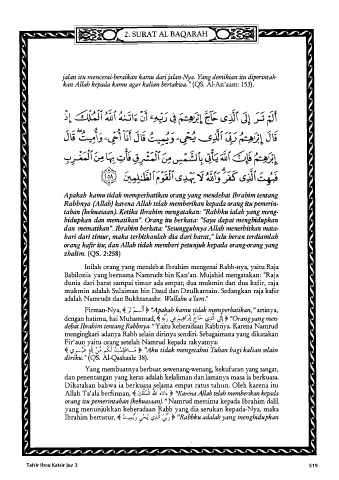 2. SURAT AL BAQARAH
jalan itu mencerai-beraikan kamu dari jalan-Nya. Yang demikian itu diperintah-
kan Allah kepada kamu agar kalian bertakwa." (QS. Al-An'aam: 153).
أَلَمْ تَرَ إِلَى الَّذِي حَاجَّ إِبْرَاهِيمَ فِي رَبِّهِ أَنْ ءَاتَاهُ اللَّهُ الْمُلْكَ إِذْ
قَالَ إِبْرَاهِيمُ رَبِّيَ الَّذِي يُحْيِي وَيُمِيتُ قَالَ أَنَا أُحْيِي وَأُمِيتُ قَالَ
إِبْرَاهِيمُ فَإِنَّ اللَّهَ يَأْتِي بِالشَّمْسِ مِنَ الْمَشْرِقِ فَأْتِ بِهَا مِنَ الْمَغْرِبِ
فَبُهِتَ الَّذِي كَفَرَ وَاللَّهُ لَا يَهْدِي الْقَوْمَ الظَّالِمِينَ ﴿٢٥٨﴾
Apakah kamu tidak memperhatikan orang yang mendebat Ibrahim tentang
Rabbnya (Allah) karena Allah telah memberikan kepada orang itu pemerin-
tahan (kekuasaan). Ketika Ibrahim mengatakan: "Rabbku ialah yang meng-
hidupkan dan mematikan". Orang itu berkata: "Saya dapat menghidupkan
dan mematikan". Ibrahim berkata: "Sesungguhnya Allah menerbitkan mata-
hari dari timur, maka terbitkanlah dia dari barat," lalu heran terdiamlah
orang kafir itu, dan Allah tidak memberi petunjuk kepada orang-orang yang
zhalim. (QS. 2:258)
Inilah orang yang mendebat Ibrahim mengenai Rabb-nya, yaitu Raja
Babilonia yang bernama Namrudz bin Kan'an. Mujahid mengatakan: "Raja
dunia dari barat sampai timur ada empat; dua mukmin dan dua kafir, raja
mukmin adalah Sulaiman bin Daud dan Dzulkarnain. Sedangkan raja kafir
adalah Namrudz dan Bukhtanashr. Wallahu a'lam."
Firman-Nya, ﴿ أَلَمْ تَرَ ﴾ "Apakah kamu tidak memperhatikan," artinya,
dengan hatimu, hai Muhammad, ﴿ إِلَى الَّذِي حَاجَّ إِبْرَاهِيمَ فِي رَبِّهِ ﴾ "Orang yang men-
debat Ibrahim tentang Rabbnya." Yaitu keberadaan Rabbnya. Karena Namrud
mengingkari adanya Rabb selain dirinya sendiri. Sebagaimana yang dikatakan
Fir'aun yaitu orang setelah Namrud kepada rakyatnya:
﴿ مَا عَلِمْتُ لَكُم مِّنْ إِلَهٍ غَيْرِي ﴾ "Aku tidak mengetahui Tuhan bagi kalian selain
diriku." (QS. Al-Qashash: 38).
Yang membuatnya berbuat sewenang-wenang, kekufuran yang sangat,
dan penentangan yang keras adalah kelaliman dan lamanya masa ia berkuasa.
Dikatakan bahwa ia berkuasa selama empat ratus tahun. Oleh karena itu
Allah Ta'ala berfirman, ﴿ أَنْ ءَاتَاهُ اللَّهُ الْمُلْكَ ﴾ "Karena Allah telah memberikan kepada
orang itu pemerintahan (kekuasaan)." Namrud meminta kepada Ibrahim dalil
yang menunjukkan keberadaan Rabb yang dia serukan kepada-Nya, maka
Ibrahim bertutur, ﴿ رَبِّيَ الَّذِي يُحْيِي وَيُمِيتُ ﴾ "Rabbku adalah yang menghidupkan
Tafsir Ibnu Katsir Juz 3 519